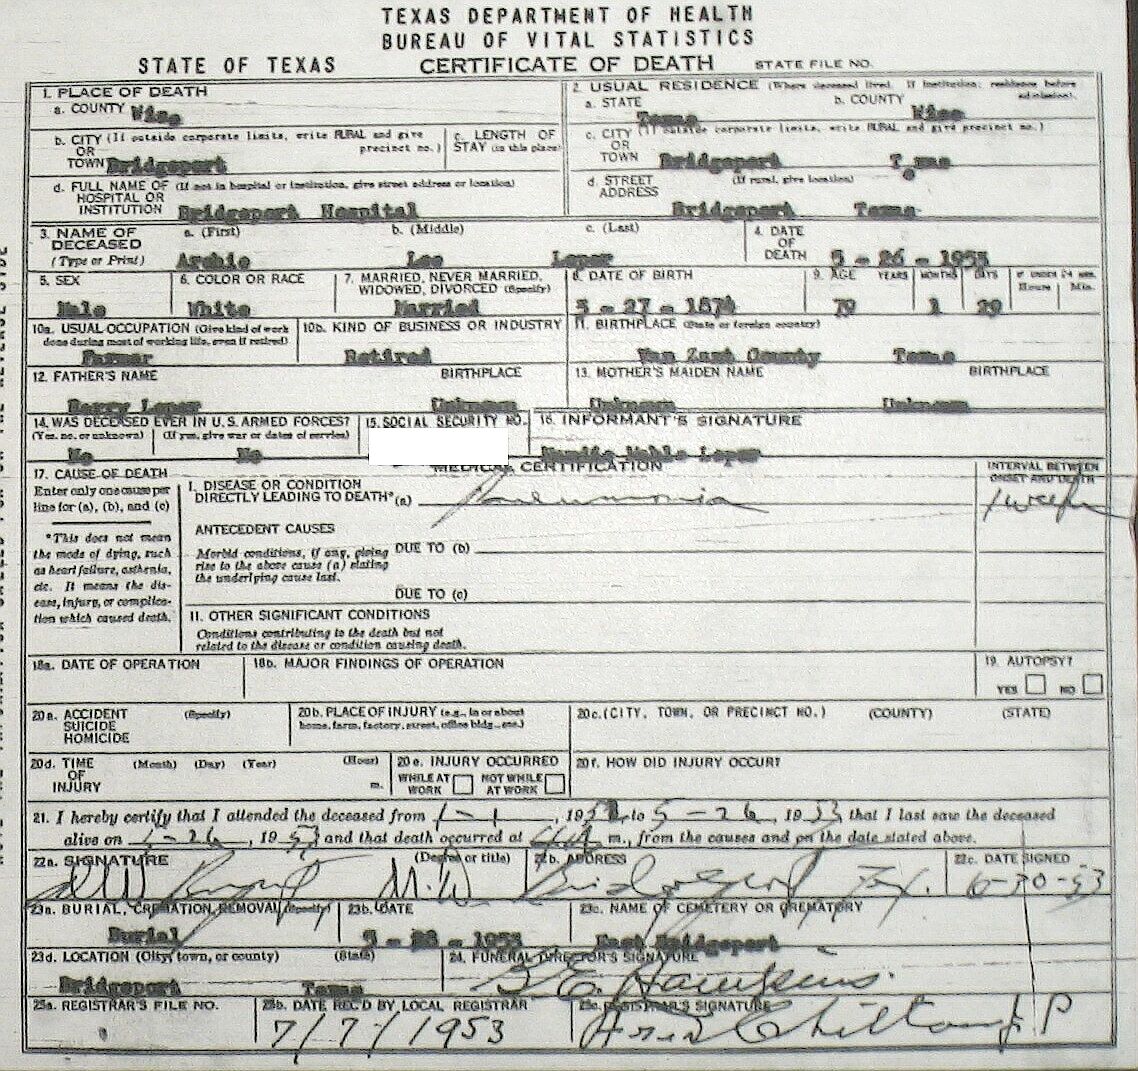 TEXAS DEPARTMENT OF HEALTH
BUREAU OF VITAL STATISTICS
STATE OF TEXAS CERTIFICATE OF DEATH STATE FILE NO.
1. PLACE OF DEATH
a. COUNTY Wise
2. USUAL RESIDENCE (Where deceased lived. If institution: residence before admission).
a. STATE Texas b. COUNTY Wise
b. CITY (If outside corporate limits, write RURAL and give precinct no.)
OR
TOWN Bridgeport
c. LENGTH OF STAY (in this place)
c. CITY (If outside corporate limits, write RURAL and give precinct no.)
OR
TOWN Bridgeport Texas
d. FULL NAME OF (If not in hospital or institution, give street address or location)
HOSPITAL OR
INSTITUTION Bridgeport Hospital
d. STREET ADDRESS (If rural, give location)
Bridgeport Texas
3. NAME OF DECEASED (Type or Print)
a. (First) b. (Middle) c. (Last)
Archie Lee Loper
4. DATE OF DEATH 5 - 26 - 1953
5. SEX
Male
6. COLOR OR RACE
White
7. MARRIED, NEVER MARRIED, WIDOWED, DIVORCED (Specify)
Married
8. DATE OF BIRTH
3 - 27 - 1874
9. AGE YEARS MONTHS DAYS IF UNDER 24 HRS. Hours Min.
79 1 29
10a. USUAL OCCUPATION (Give kind of work done during most of working life, even if retired)
Farmer
10b. KIND OF BUSINESS OR INDUSTRY
Retired
11. BIRTHPLACE (State or foreign country)
Van Zant County Texas
12. FATHER'S NAME BIRTHPLACE
Loper Unknown
13. MOTHER'S MAIDEN NAME BIRTHPLACE
Unknown Unknown
14. WAS DECEASED EVER IN U.S. ARMED FORCES?
(Yes, no, or unknown) (If yes, give war or dates of service)
No No
15. SOCIAL SECURITY NO.
16. INFORMANT'S SIGNATURE
Mable Loper
MEDICAL CERTIFICATION
17. CAUSE OF DEATH
Enter only one cause per line for (a), (b), and (c)
*This does not mean the mode of dying, such as heart failure, asthenia, etc. It means the disease, injury, or complication which caused death.
I. DISEASE OR CONDITION
DIRECTLY LEADING TO DEATH* (a) Pneumonia
INTERVAL BETWEEN ONSET AND DEATH
1 week
ANTECEDENT CAUSES
Morbid conditions, if any, giving rise to the above cause (a) stating the underlying cause last.
DUE TO (b)
DUE TO (c)
II. OTHER SIGNIFICANT CONDITIONS
Conditions contributing to the death but not related to the disease or condition causing death.
18a. DATE OF OPERATION
18b. MAJOR FINDINGS OF OPERATION
19. AUTOPSY?
YES NO
20a. ACCIDENT (Specify)
SUICIDE
HOMICIDE
20b. PLACE OF INJURY (e.g., in or about home, farm, factory, street, office bldg., etc.)
20c. (CITY, TOWN, OR PRECINCT NO.) (COUNTY) (STATE)
20d. TIME OF INJURY (Month) (Day) (Year) (Hour) m.
20e. INJURY OCCURRED
WHILE AT WORK NOT WHILE AT WORK
20f. HOW DID INJURY OCCUR?
21. I hereby certify that I attended the deceased from 1 - 1, 195 to 5 - 26, 1953 that I last saw the deceased
alive on 5 - 26, 1953 and that death occurred at m., from the causes and on the date stated above.
22a. SIGNATURE (Degree or title)
M.D.
22b. ADDRESS
Bridgeport Tex.
22c. DATE SIGNED
6-30-53
23a. BURIAL, CREMATION, REMOVAL (Specify)
Burial
23b. DATE
5 - 28 - 1953
23c. NAME OF CEMETERY OR CREMATORY
East Bridgeport
23d. LOCATION (City, town, or county) (State)
Bridgeport Texas
24. FUNERAL DIRECTOR'S SIGNATURE
G.E. Hawkins
25a. REGISTRAR'S FILE NO.
25b. DATE REC'D BY LOCAL REGISTRAR
7/7/1953
25c. REGISTRAR'S SIGNATURE
Chilton J P